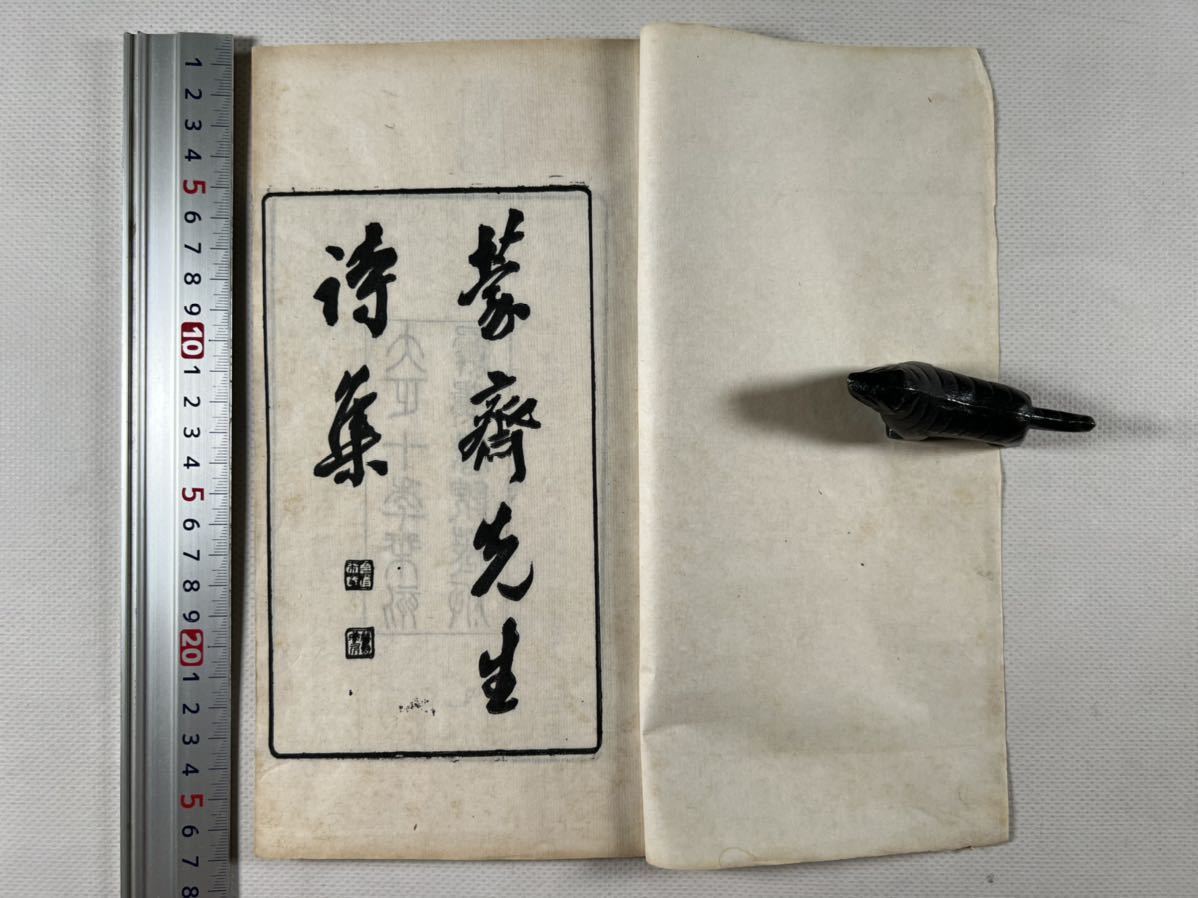 蒙齋先生
詩集
1 2 3 4 5 6 7 8 9 10 1 2 3 4 5 6 7 8 9 20 1 2 3 4 5 6 7 8